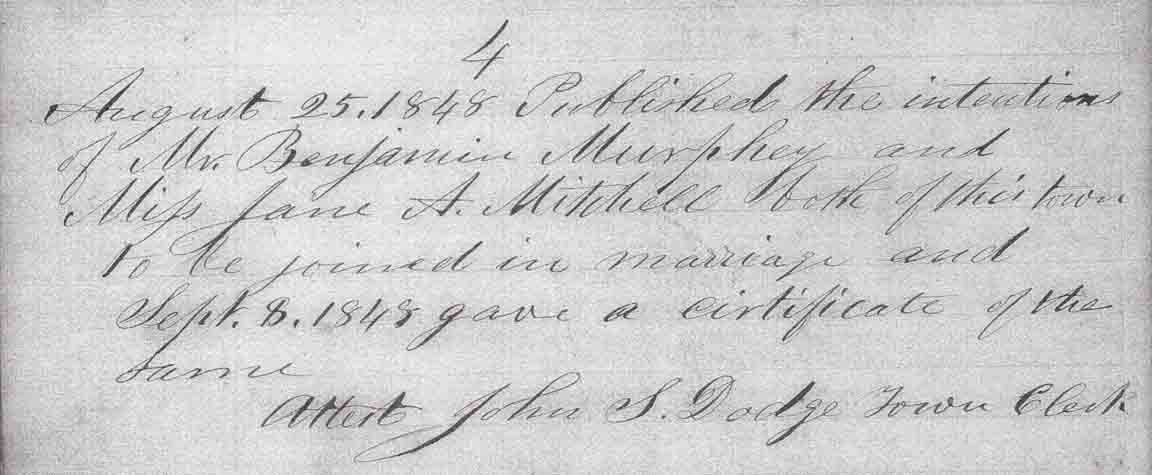 4
August 25. 1848 Published the intentions
of Mr. Benjamin Murphey and
Miss Jane A. Mitchell both of this town
to be joined in marriage and
Sept. 8. 1848 gave a cirtificate of the
same
Attest John S. Dodge Town Clerk